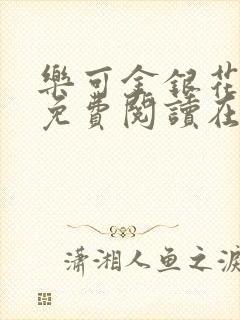 樂可金銀花
免費閱讀在
瀟湘人鱼之淚